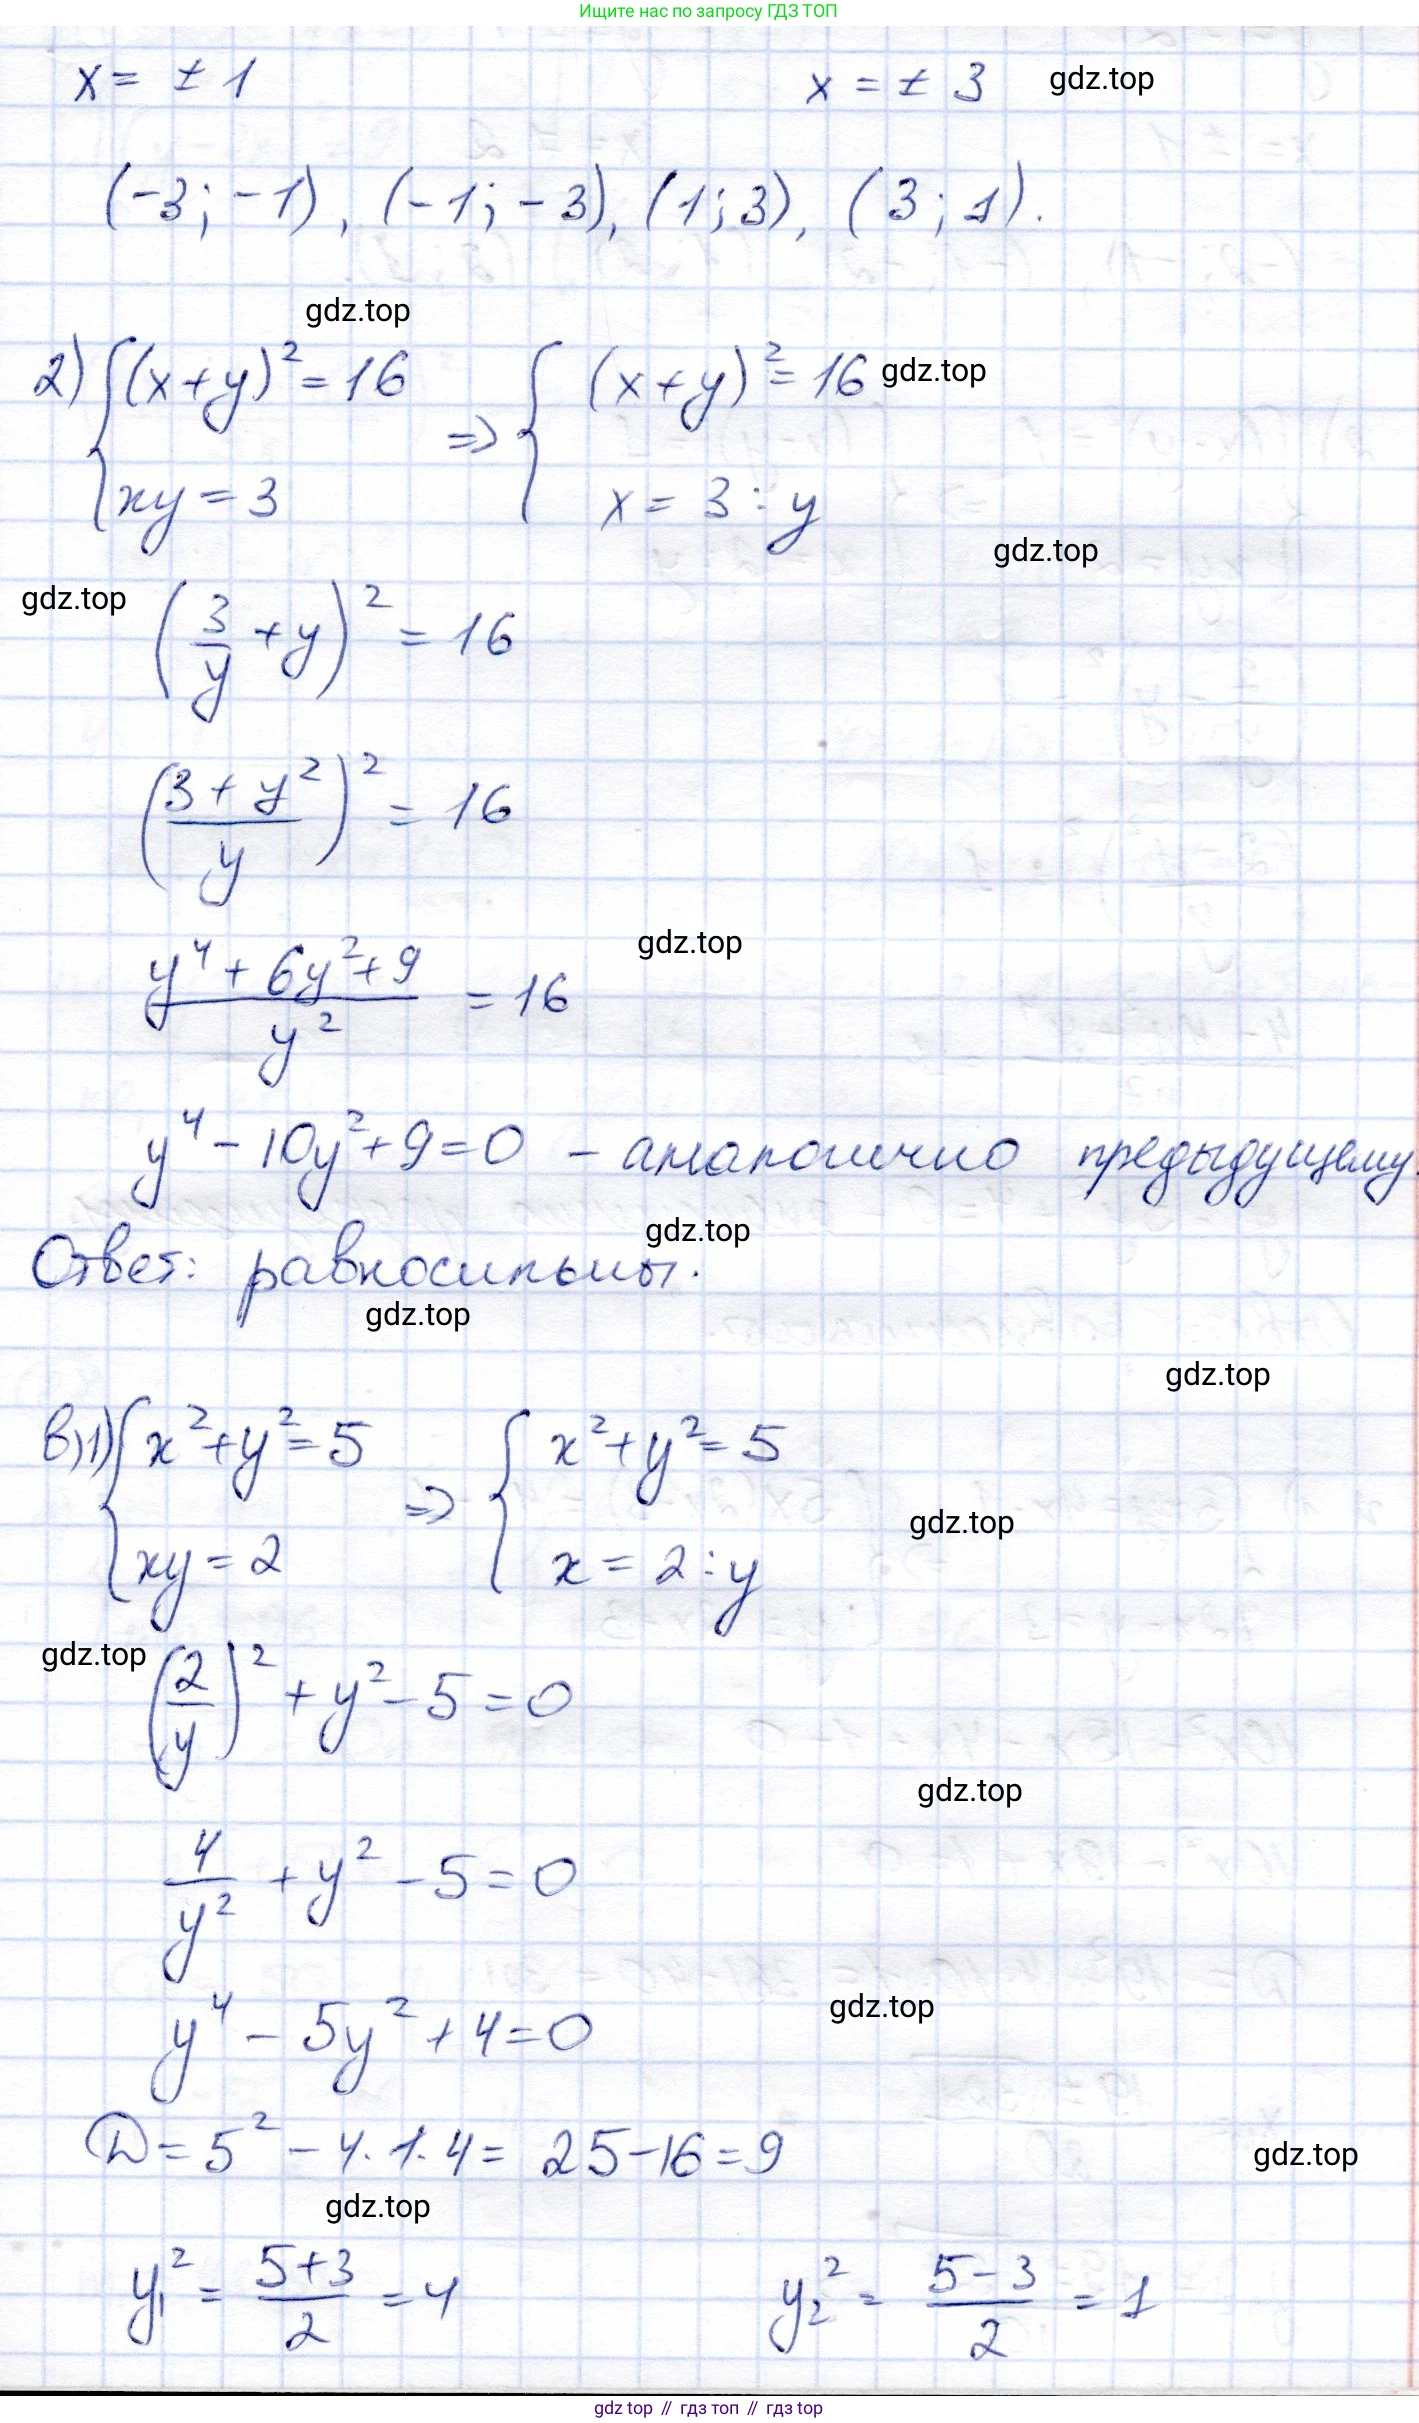 Ищите нас по запросу ГДЗ ТОП
x = ± 1 x = ± 3 gdz.top
(-3; -1), (-1; -3), (1; 3), (3; 1).
gdz.top
2) { (x+y)² = 16 => { (x+y)² = 16 gdz.top
xy = 3 x = 3 : y
gdz.top
gdz.top
(3/y + y)² = 16
((3 + y²)/y)² = 16
gdz.top
(y⁴ + 6y² + 9)/y² = 16
y⁴ - 10y² + 9 = 0 - аналогично предыдущему.
gdz.top
Ответ: равносильны.
gdz.top
gdz.top
в) 1) { x² + y² = 5 => { x² + y² = 5
gdz.top
xy = 2 x = 2 : y
gdz.top
(2/y)² + y² - 5 = 0
gdz.top
4/y² + y² - 5 = 0
gdz.top
y⁴ - 5y² + 4 = 0
D = 5² - 4 · 1 · 4 = 25 - 16 = 9
gdz.top
gdz.top
y₁² = (5+3)/2 = 4 y₂² = (5-3)/2 = 1
gdz top // гдз топ // гдз top